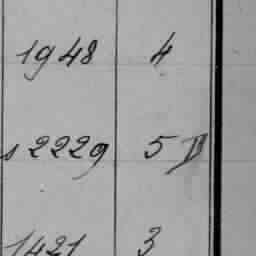 1948 4
s 2229 5 B
1421 3